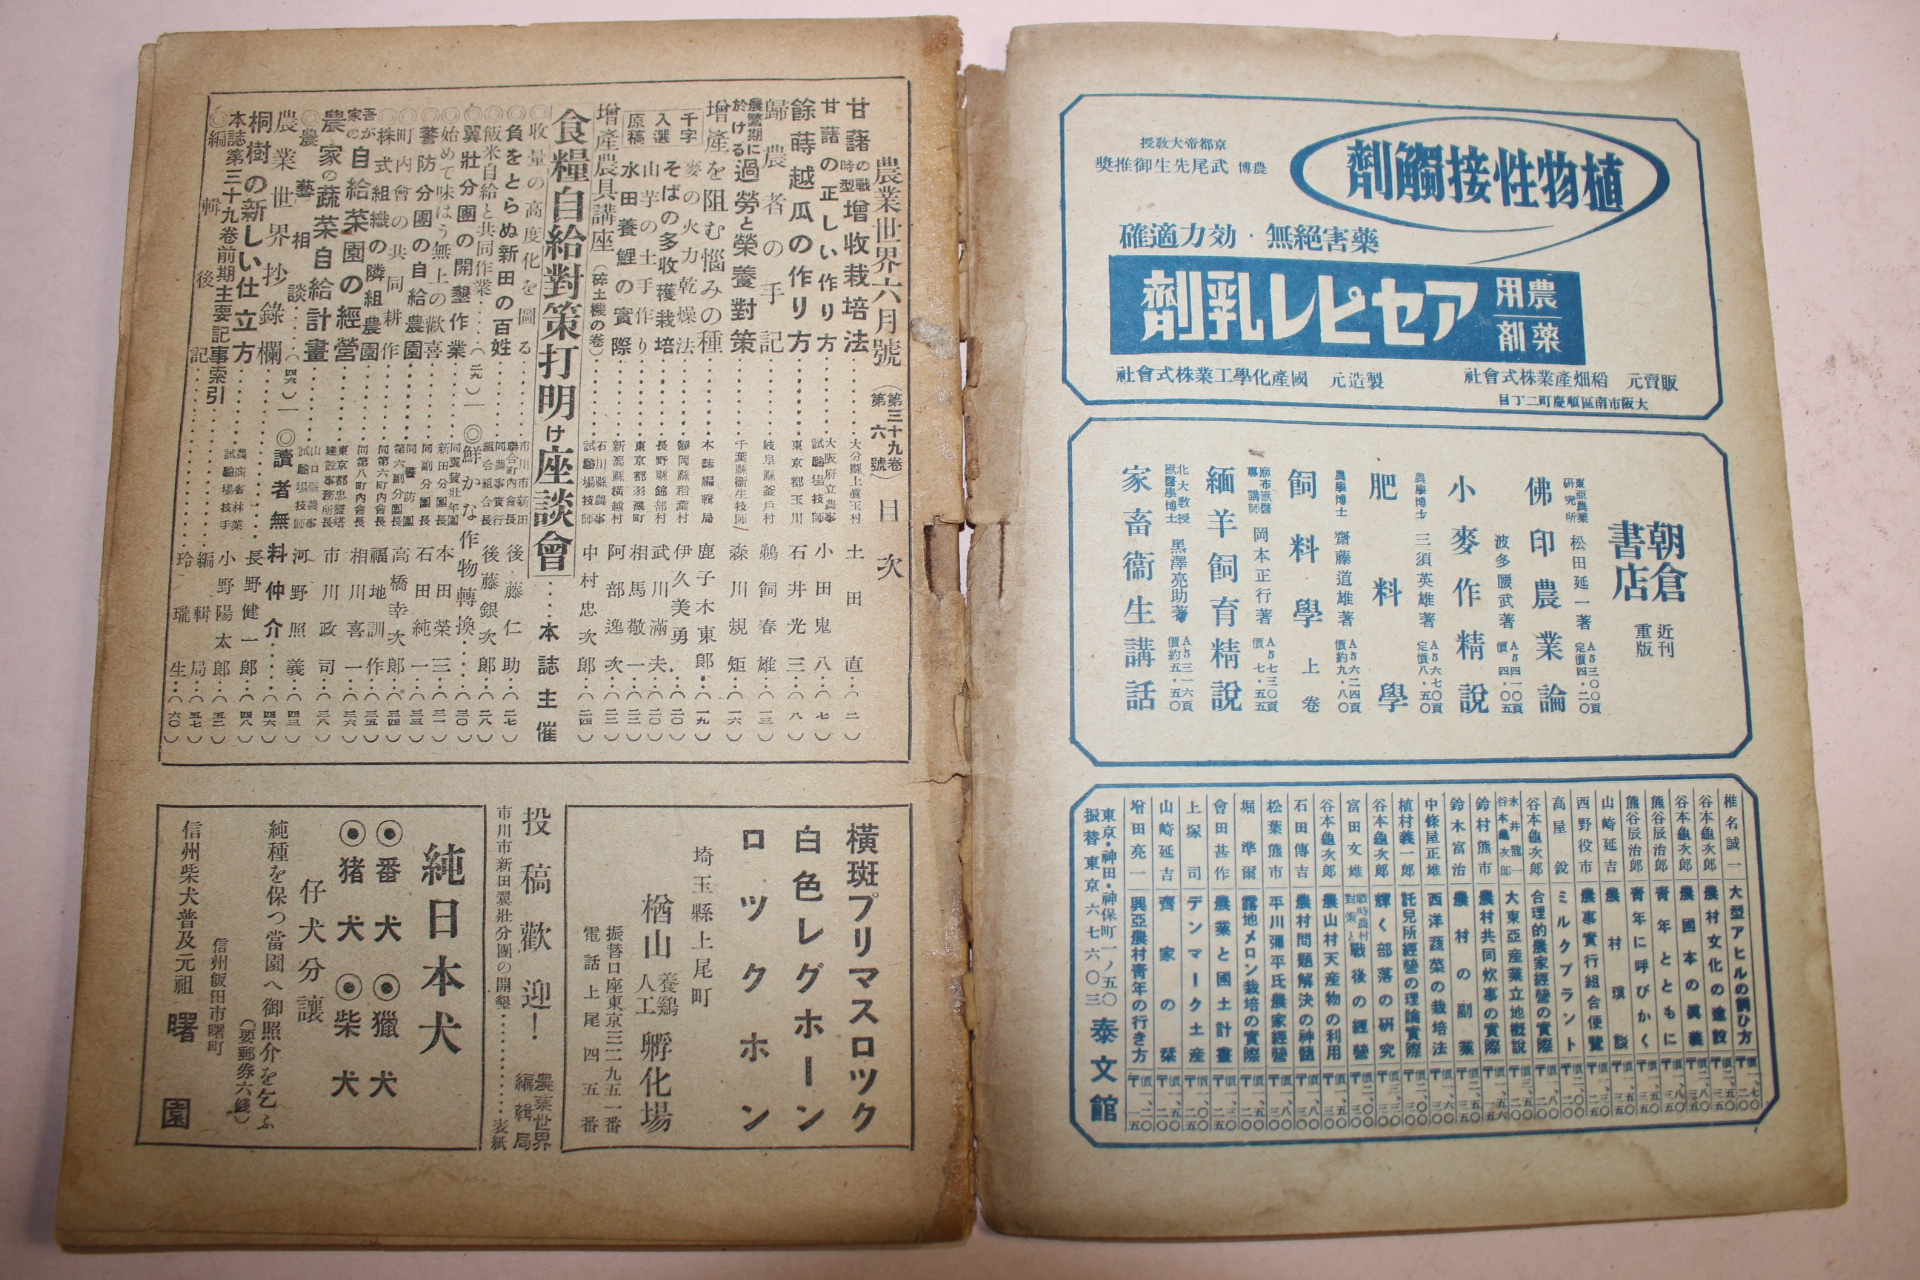 植物性接觸劑
京都帝大教授
農博 武尾先生御推奬
藥害絕無・効力適確
農用
藥劑
アセピレ乳劑
販賣元 稻畑產業株式會社
大阪市南區順慶町二丁目
製造元 國產化學工業株式會社
朝倉書店
近刊
重版
東亞農業研究所 松田延一著
佛印農業論
波多腰武著
小麥作精說
農學博士 三須英雄著
肥料學
農學博士 齋藤道雄著
飼料學 上卷
麻布獸醫專講師 岡本正行著
緬羊飼育精說
北大教授 獸醫學博士 黑澤亮助著
家畜衞生講話
椎名誠一 大型アヒルの飼ひ方
谷本龜次郎 農村文化の建設
谷本龜次郎 農國本の眞義
熊谷辰治郎 靑年とともに
熊谷辰治郎 靑年に呼びかく
山崎延吉 農村瑣談
西野役市 農事實行組合便覽
高屋銳 ミルクプラント
谷本龜次郎 合理的農家經營の實際
永井龍一 谷本龜次郎 大東亞產業立地槪說
鈴村熊市 農村共同炊事の實際
鈴木富治 農村の副業
中條屋正雄 西洋蔬菜の栽培法
植村義一郎 託兒所經營の理論實際
谷本龜次郎 輝く部落の硏究
富田文雄 戰時農村對策と戰後の經營
谷本龜次郎 農山村天產物の利用
石田傳吉 農村問題解決の神髓
松葉熊市 平川彌平氏農家經營
堀準爾 露地メロン栽培の實際
會田甚作 農業と國土計畫
上塚司 デンマーク土產
山崎延吉 齊家の栞
增田亮一 興亞農村靑年の行き方
東京・神田・神保町一ノ五〇
振替東京六七六〇三
泰文館
農業世界六月號 (第三十九卷 第六號) 目次
甘藷の戰時型增收栽培法 大分縣上眞玉村 土田直 (二)
甘藷の正しい作り方 大阪府立農事試驗場技師 小田鬼八 (七)
餘蒔越瓜の作り方 東京都玉川 石井光三 (八)
歸農者の手記 岐阜縣釜戶村 鵜飼春雄 (一三)
農繁期に於ける過勞と榮養對策 千葉縣衞生技師 森川規矩 (一六)
增產を阻む惱みの種 本誌編輯局 鹿子木東郎 (一九)
千字入選原稿
麥の火力乾燥法 靜岡縣稻葉村 伊久美勇 (二〇)
そばの多收穫栽培 長野縣錦部村 武川滿夫 (二〇)
山芋の土手作り 東京都羽澤町 相馬敬一 (二二)
水田養鯉の實際 新潟縣橫越村 阿部逸次 (二三)
增產農具講座 (碎土機の卷) 石川縣農事試驗場技師 中村忠次郎 (二四)
食糧自給對策打明け座談會 本誌主催
◎收量の高度化を圖る 市川市新田聯合町內會長 後藤仁助 (二七)
◎負をとらぬ新田の百姓 同農事實行組合組合長 後藤銀次郎 (二八)
◎飯米自給と共同作業 (二九) ― ◎鮮かな作物轉換 (三〇)
◎翼壯分團の開墾作業 同翼贊壯年團新田分團長 本田榮三 (三一)
◎始めて味はう無上の歡喜 同副分團長 石田純一 (三三)
◎警防分團の自給農園 同警防團第六副分團長 高橋幸次郎 (三四)
◎町內會の共同耕作 同第六町內會長 福地訓作 (三五)
◎株式組織の隣組農園 同第八町內會長 相川喜一 (三六)
吾が家の自給菜園の經營 東京都忠靈塔建設事務所長 市川政司 (三八)
農家の蔬菜自給計畫 山口縣農事試驗場技師 河野照義 (四三)
◎農藝相談 (四六) ― ◎讀者無料仲介 (四六)
農業世界抄錄欄 長野健一郎 (四八)
桐樹の新しい仕立方 農商省林業試驗場技手 小野陽太郎 (五二)
本誌第三十九卷前期主要記事索引 編輯局 (五七)
◎編輯後記 玲瓏生 (六〇)
橫斑プリマスロツク
白色レグホーン
ロツクホン
埼玉縣上尾町
楢山養鷄人工孵化場
振替口座東京三二九五一番
電話上尾四五番
投稿歡迎! 農業世界編輯局
市川市新田翼壯分團の開墾……表紙
純日本犬
◉番犬 ◉獵犬
◉猪犬 ◉柴犬
仔犬分讓
純種を保つ當園へ御照介を乞ふ
(要郵券六錢)
信州飯田市曙町
信州柴犬普及元祖 曙園